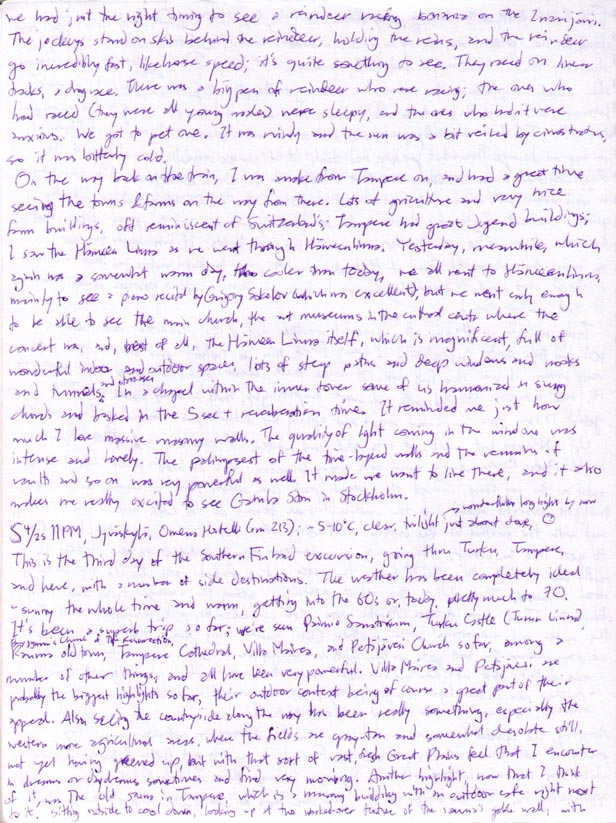 we had just the right timing to see a reindeer racing bonanza on the Inarijärvi.
The jockeys stand on skis behind the reindeer, holding the reins, and the reindeer
go incredibly fast, like horse speed; it's quite something to see. They raced on linear
tracks, a drag race. There was a big pen of reindeer who were racing; the ones who
had raced (they were all young males) were sleepy, and the ones who hadn't were
anxious. We got to pet one. It was windy and the sun was a bit veiled by cirrostratus,
so it was bitterly cold.
On the way back on the train, I was awake from Tampere on, and had a great time
seeing the towns & farms on the way from there. Lots of agriculture and very nice
farm buildings, oft reminiscent of Switzerland's; Tampere had great Jugend buildings;
I saw the Hämeen Linna as we went through Hämeenlinna. Yesterday, meanwhile, which
again was a somewhat warm day, tho cooler than today, we all went to Hämeenlinna,
mainly to see a piano recital by Grigory Sokolov (which was excellent), but we went early enough
to be able to see the main church, the art museums in the cultural center where the
concert was, and, best of all, the Hämeen Linna itself, which is magnificent, full of
wonderful indoor and outdoor spaces, lots of steep paths and deep windows and nooks
and tunnels and staircases. In a chapel within the inner tower some of us harmonized in sung
chords and basked in the 5 sec+ reverberation time. It reminded me just how
much I love massive masonry walls. The quality of light coming in the windows was
intense and lovely. The palimpsest of the time-layered walls and the remains of
vaults and so on was very powerful as well. It made me want to live there, and it also
makes me really excited to see Gamla Stan in Stockholm.
S 4/25 11PM, Jyväskylä, Omena Hotelli (rm 213); ~5-10°C, clear, twilight just about done, → wonderfully long light by now
This is the third day of the Southern Finland excursion, going thru Turku, Tampere,
and here, with a number of side destinations. The weather has been completely ideal
- sunny the whole time and warm, getting into the 60s or, today, pretty much to 70.
It's been a superb trip so far; we've seen Paimio Sanatorium, Turku Castle (Turun Linna),
Rauma old town, Tampere Cathedral, Villa Mairea, and Petäjävesi Church so far, among a
number of other things, and all have been very powerful. Villa Mairea and Petäjävesi are
probably the biggest highlights so far, their outdoor context being of course a great part of their
appeal. Also seeing the countryside along the way has been really something, especially the
western more agricultural areas, where the fields are gray-tan and somewhat desolate still,
not yet having greened up, but with that sort of vast, fresh Great Plains feel that I encounter
in dreams or daydreams sometimes and find very moving. Another highlight, now that I think
of it, was the old sauna in Tampere, which is a masonry building with an outdoor cafe right next
to it; sitting outside to cool down, looking up at the of the sauna's gable wall, with